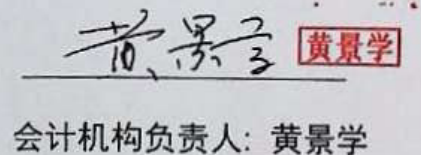 黄景学 黄景学
会计机构负责人: 黄景学